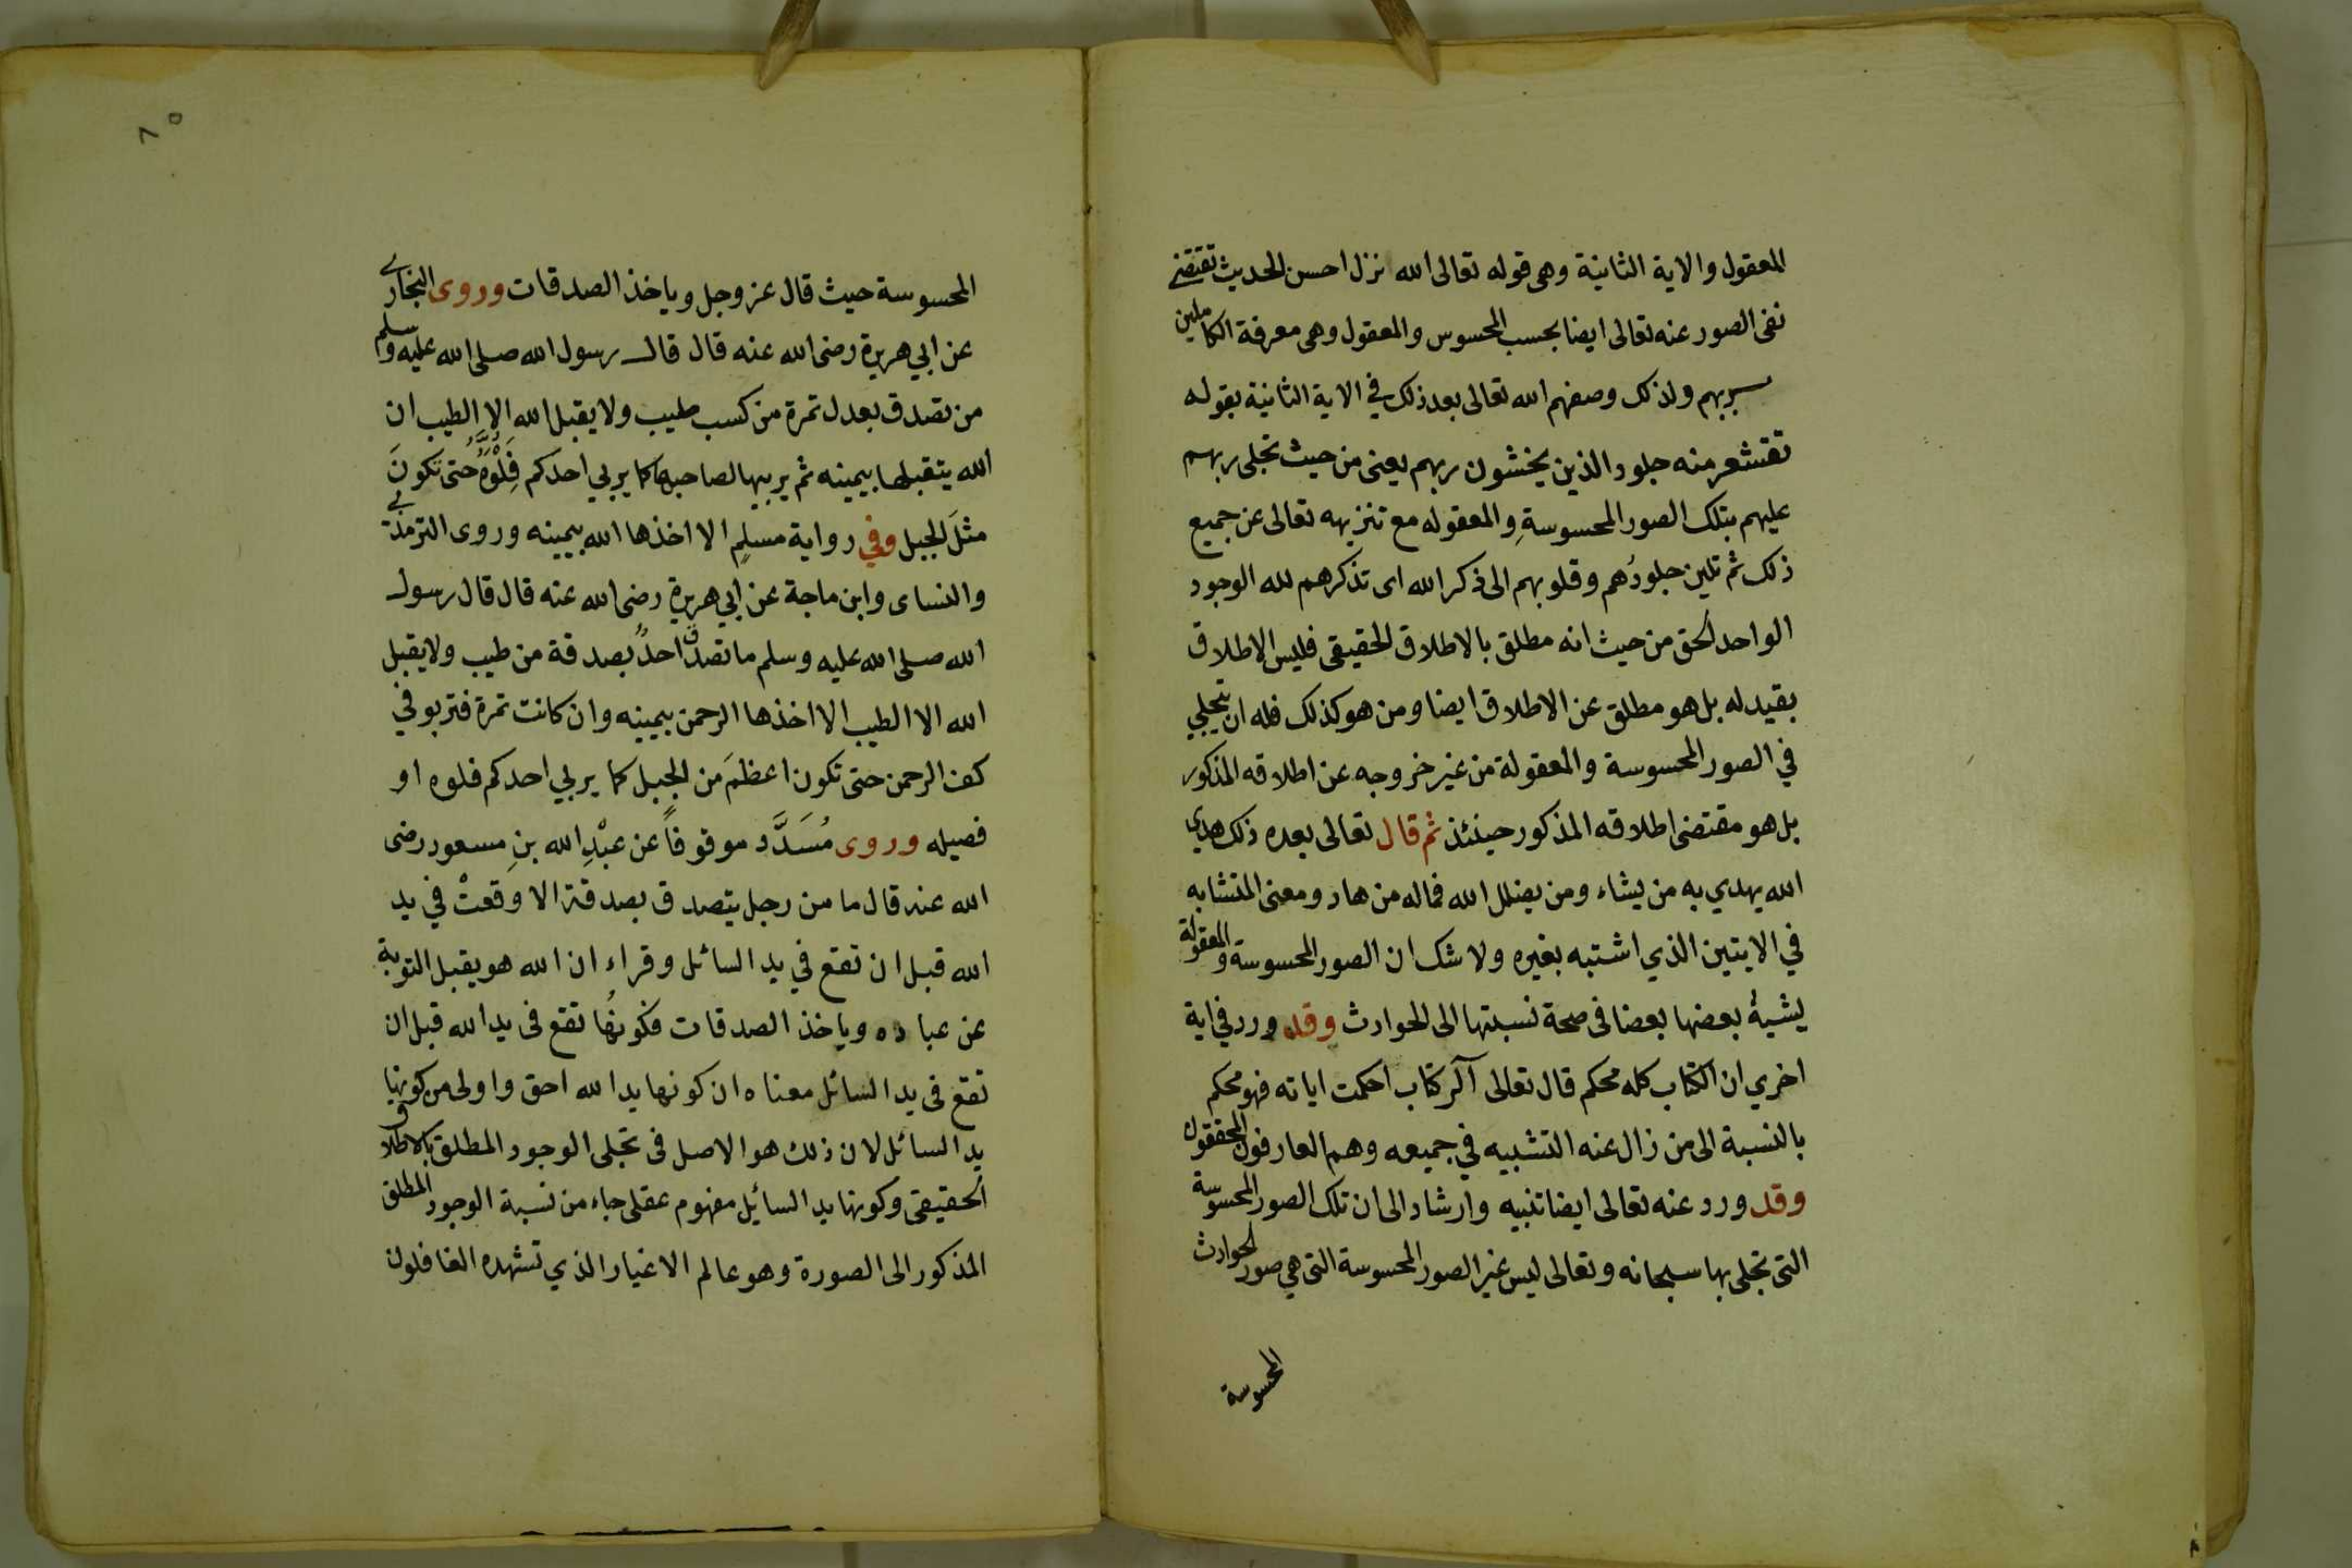 المعقول والاية الثانية وهى قوله تعالى الله نزل احسن الحديث تقتضى
نفى الصور عنه تعالى ايضا بحسب المحسوس والمعقول وهى معرفة الكاملين
بربهم ولذلك وصفهم الله تعالى بعد ذلك في الاية الثانية بقوله
تقشعر منه جلود الذين يخشون ربهم يعنى من حيث تجلى ربهم
عليهم بتلك الصور المحسوسةِ والمعقوله مع تنزيهه تعالى عن جميع
ذلك ثم تلين جلودُهم وقلوبهم الى ذكر الله اى تذكرهم لله الوجود
الواحد الحق من حيث انه مطلق بالاطلاق الحقيقى فليس الاطلاق
بقيد له بل هو مطلق عن الاطلاق ايضا ومن هو كذلك فله ان يتجلي
في الصور المحسوسة والمعقولة من غير خروجه عن اطلاقه المذكور
بل هو مقتضى اطلاقه المذكور حينئذ ثم قال تعالى بعده ذلك هدي
الله يهدي به من يشاء ومن يضلل الله فماله من هاد ومعنى المتشابه
في الايتين الذي اشتبه بغيره ولا شك ان الصور المحسوسة والمعقولة
يشبهُ بعضها بعضا فى صحة نسبتها الى الحوادث وقد ورد في اية
اخري ان الكتاب كله محكم قال تعالى آلر كتاب احكمت اياته فهو محكم
بالنسبة الى من زال عنه التشبيه في جميعه وهم العارفون المحققون
وقد ورد عنه تعالى ايضا تنبيه وارشاد الى ان تلك الصور المحسوسة
التى تجلى بها سبحانه وتعالى ليس غير الصور المحسوسة التى هي صور الحوادث
المحسوسة
٨٥
المحسوسة حيث قال عز وجل وياخذ الصدقات وروى البخارى
عن ابي هريرة رضى الله عنه قال قال رسول الله صلى الله عليه وسلم
من تصدق بعدل تمرة من كسب طيب ولا يقبل الله الا الطيب ان
الله يتقبلها بيمينه ثم يربيها لصاحبها كما يربي احدكم فِلْوَّهُ حتى تكونَ
مثلَ الجبل وفي رواية مسلمٍ الا اخذها الله بيمينه وروى الترمذي
والنساى وابن ماجة عن ابي هريرة رضى الله عنه قال قال رسول
الله صلى الله عليه وسلم ما تصدق احدٌ بصدقة من طيب ولا يقبل
الله الا الطيب الا اخذها الرحمن بيمينه وان كانت تمرة فتربو في
كف الرحمن حتى تكون اعظمَ من الجبل كما يربي احدكم فلوه او
فصيله وروى مُسَدَّد موقوفاً عن عبْدِ الله بنِ مسعود رضى
الله عنه قال ما من رجل يتصدق بصدقة الا وَقعتْ في يد
الله قبل ان تقع في يد السائل وقراء ان الله هو يقبل التوبة
عن عباده وياخذ الصدقات فكونُها تقع فى يد الله قبل ان
تقع فى يد السائل معناه ان كونها يد الله احق واولى من كونها
يد السائل لان ذلك هو الاصل فى تجلى الوجود المطلق بالاطلاق
الحقيقى وكونها يد السائل مفهوم عقلى جاء من نسبة الوجود المطلق
المذكور الى الصورة وهو عالم الاغيار الذي تشهده الغافلون